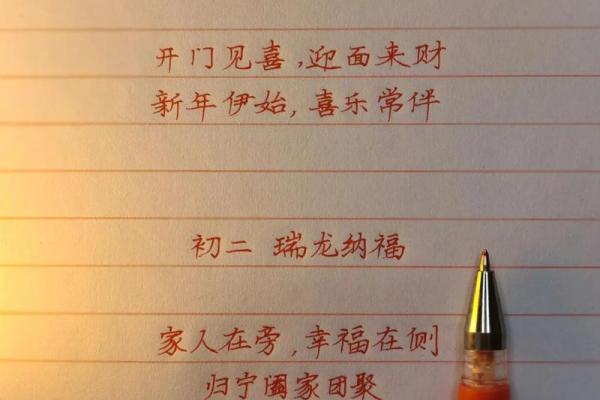 开门见喜,迎面来财
新年伊始,喜乐常伴
初二 瑞龙纳福
家人在旁,幸福在侧
归宁阖家团聚